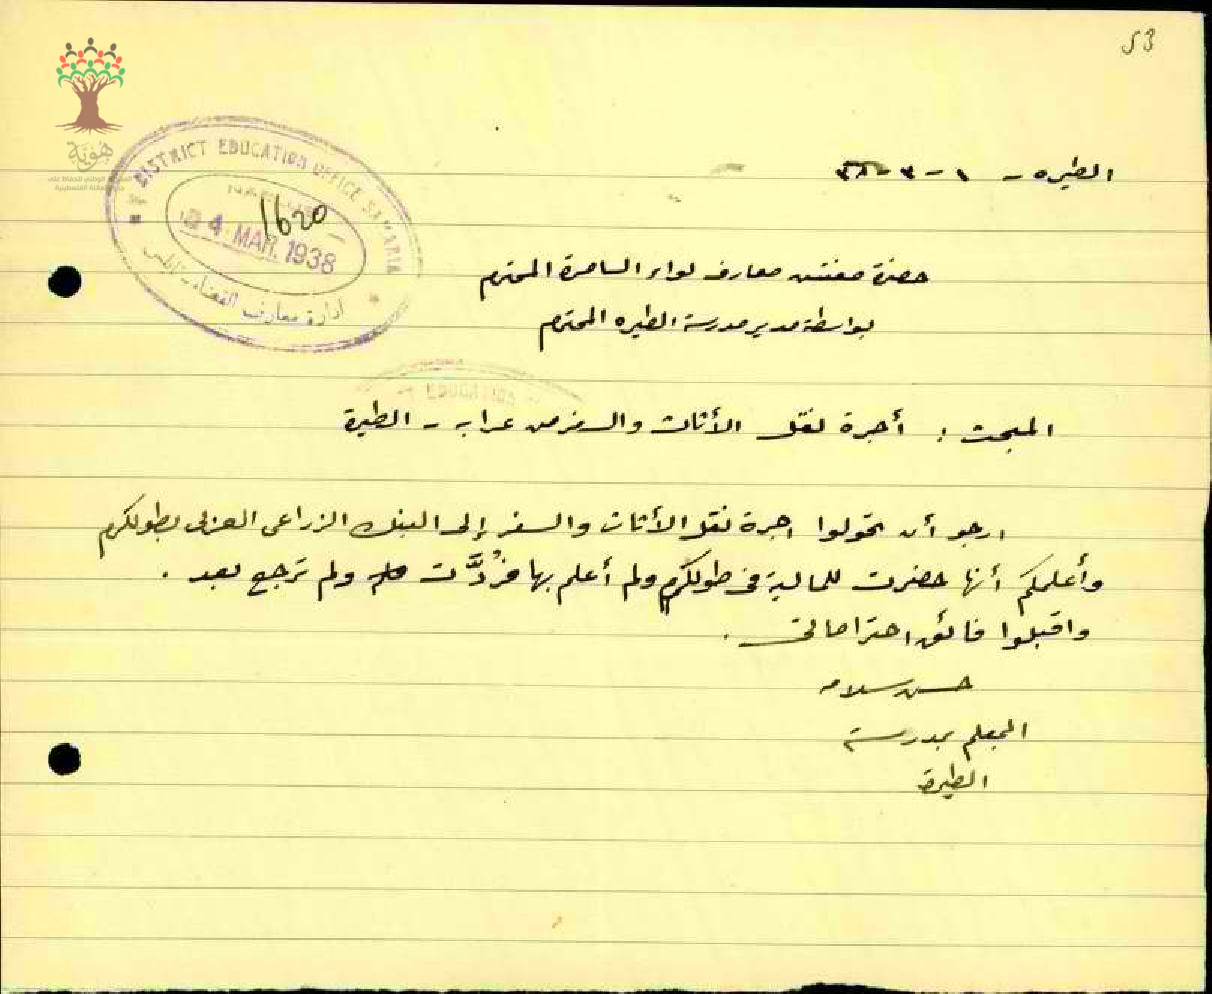 53
هوية
المشروع الوطني للحفاظ على
جذور العائلة الفلسطينية
DISTRICT EDUCATION OFFICE SAMARIA
NABLUS
1620
4 MAR. 1938
ادارة معارف القضاء نابلس
الطيره - ١ - ٣ - ٣٨
حضرة مفتش معارف لواء السامرة المحترم
بواسطة مدير مدرسة الطيره المحترم
EDUCATION
المبحث : أجرة نقل الأثاث والسفر من عرابه - الطيرة
ارجو أن تحولوا اجرة نقل الأثاث والسفر إلى البنك الزراعي العربي بطولكرم
وأعلمكم أنها حضرت للمالية في طولكرم ولم أعلم بها فرُدَّت ولم ترجع بعد .
واقبلوا فائق احتراماتي .
حسن سلامه
المعلم بمدرسة
الطيرة